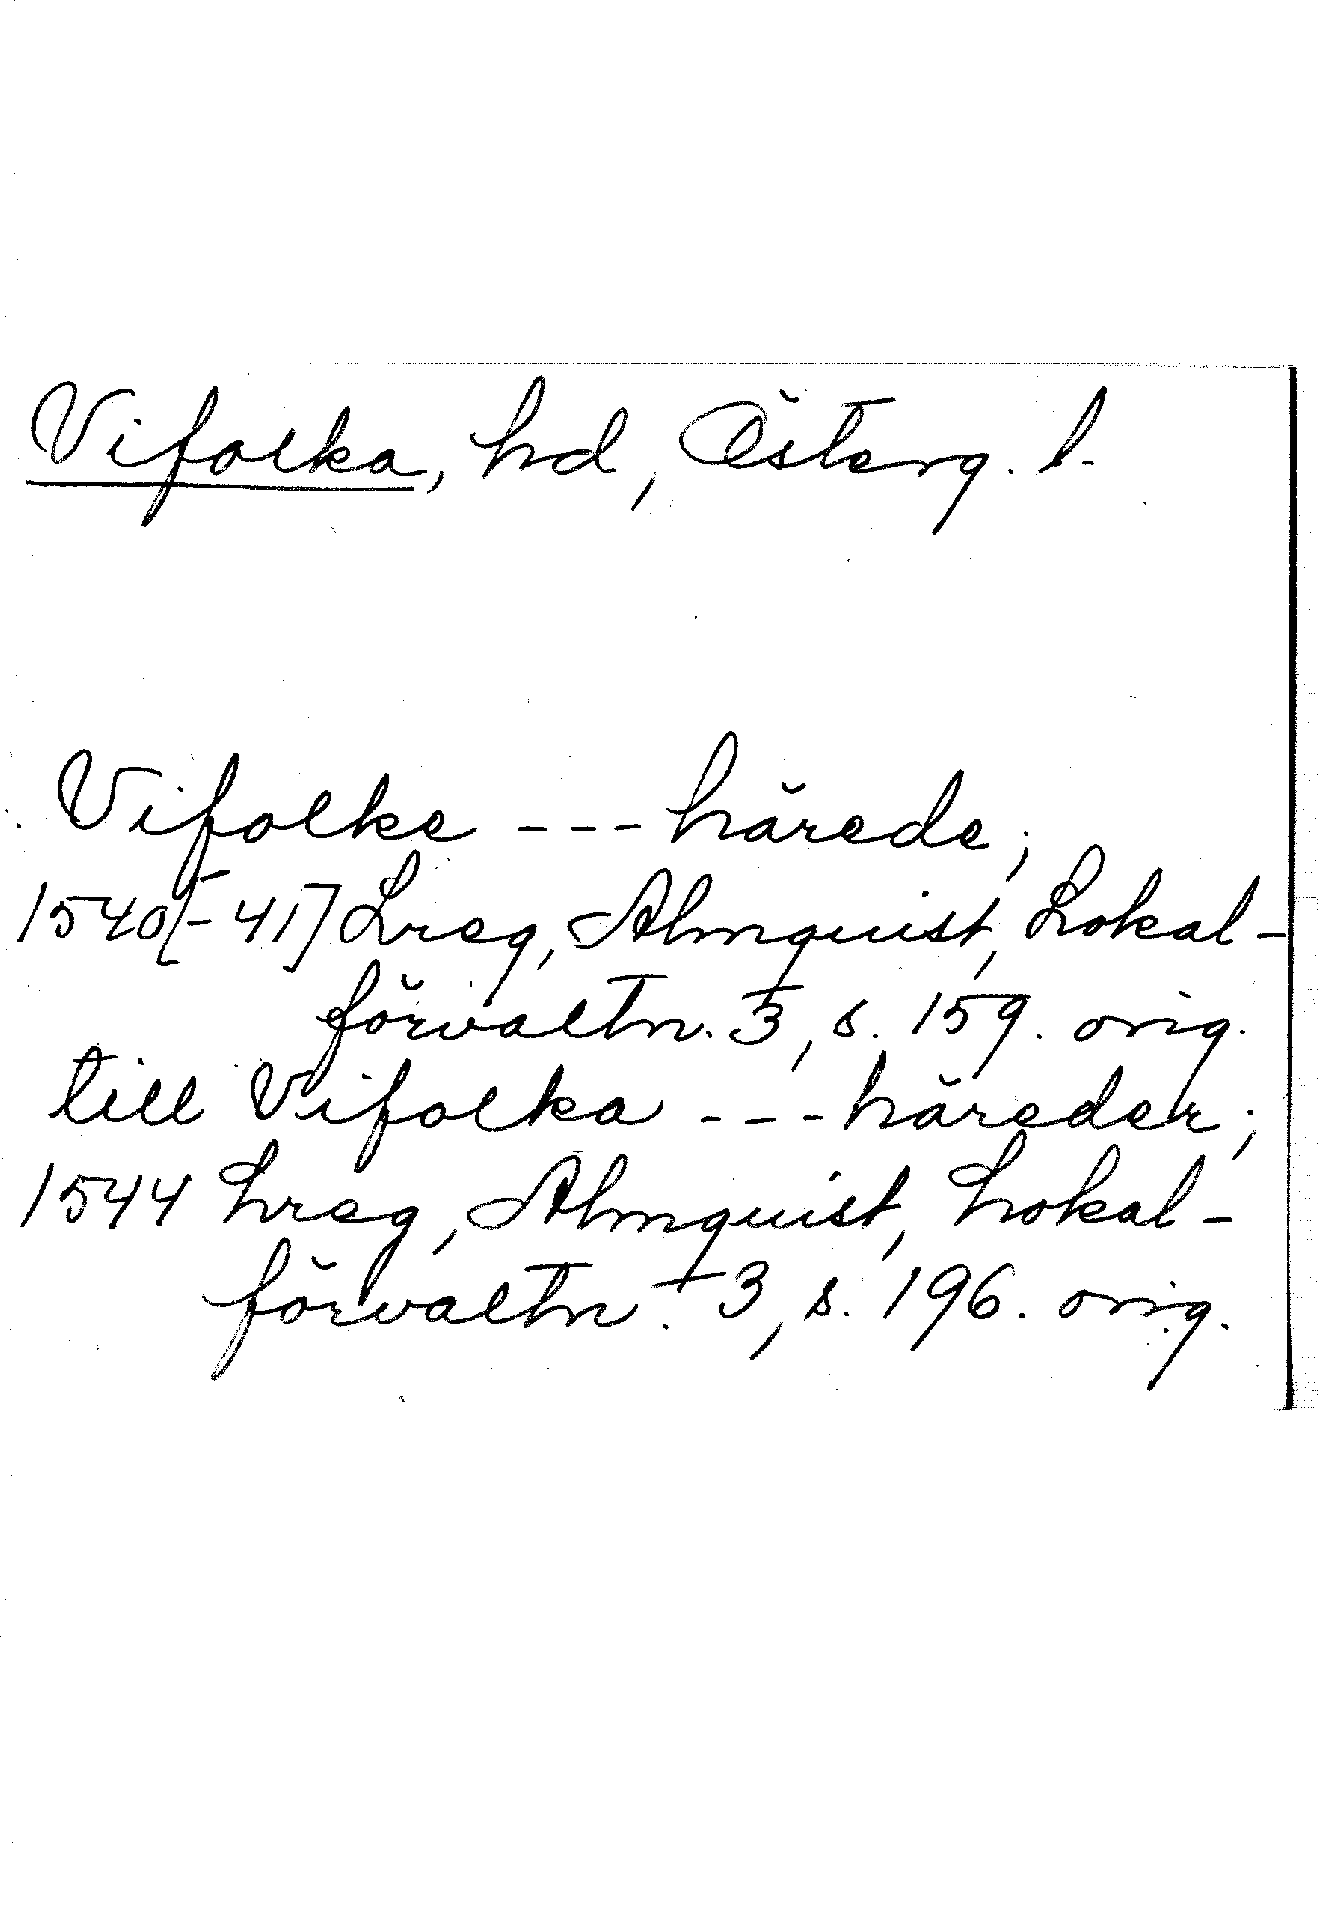 Vifolka, hd, Österg. l.
Vifolke --- härede;
1540[-41] Lreg, Almquist, Lokal-
förvaltn. 3, s. 159. orig.
till Vifolka --- häreder;
1544 Lreg, Almquist, Lokal-
förvaltn. 3, s. 196. orig.